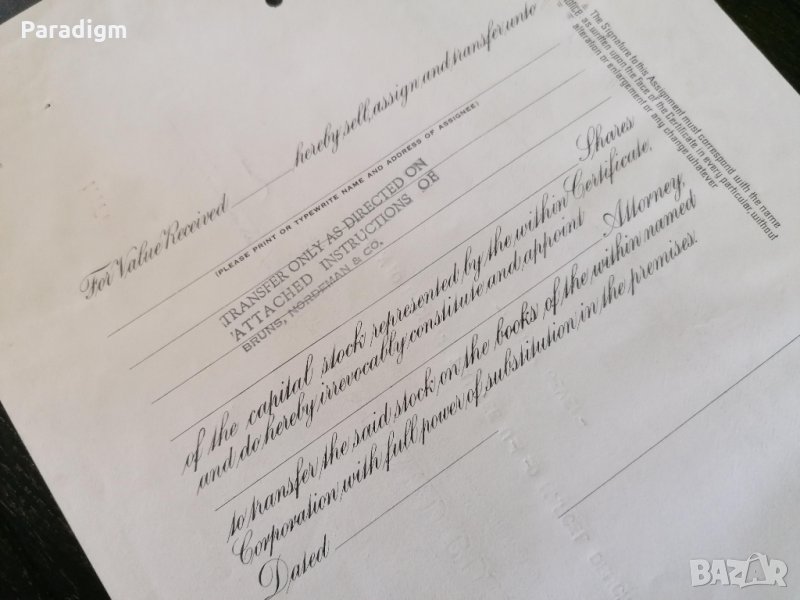 Paradigm
For Value Received ______ hereby sell, assign and transfer unto
(PLEASE PRINT OR TYPEWRITE NAME AND ADDRESS OF ASSIGNEE)
TRANSFER ONLY AS DIRECTED ON
ATTACHED INSTRUCTIONS OF
BRUNS, NORDEMAN & CO.
Shares
of the capital stock represented by the within Certificate,
and do hereby irrevocably constitute and appoint
Attorney,
to transfer the said stock on the books of the within named
Corporation with full power of substitution in the premises.
Dated
The Signature to this Assignment must correspond with the name
as written upon the face of the Certificate in every particular, without
alteration or enlargement or any change whatever
BAZAR